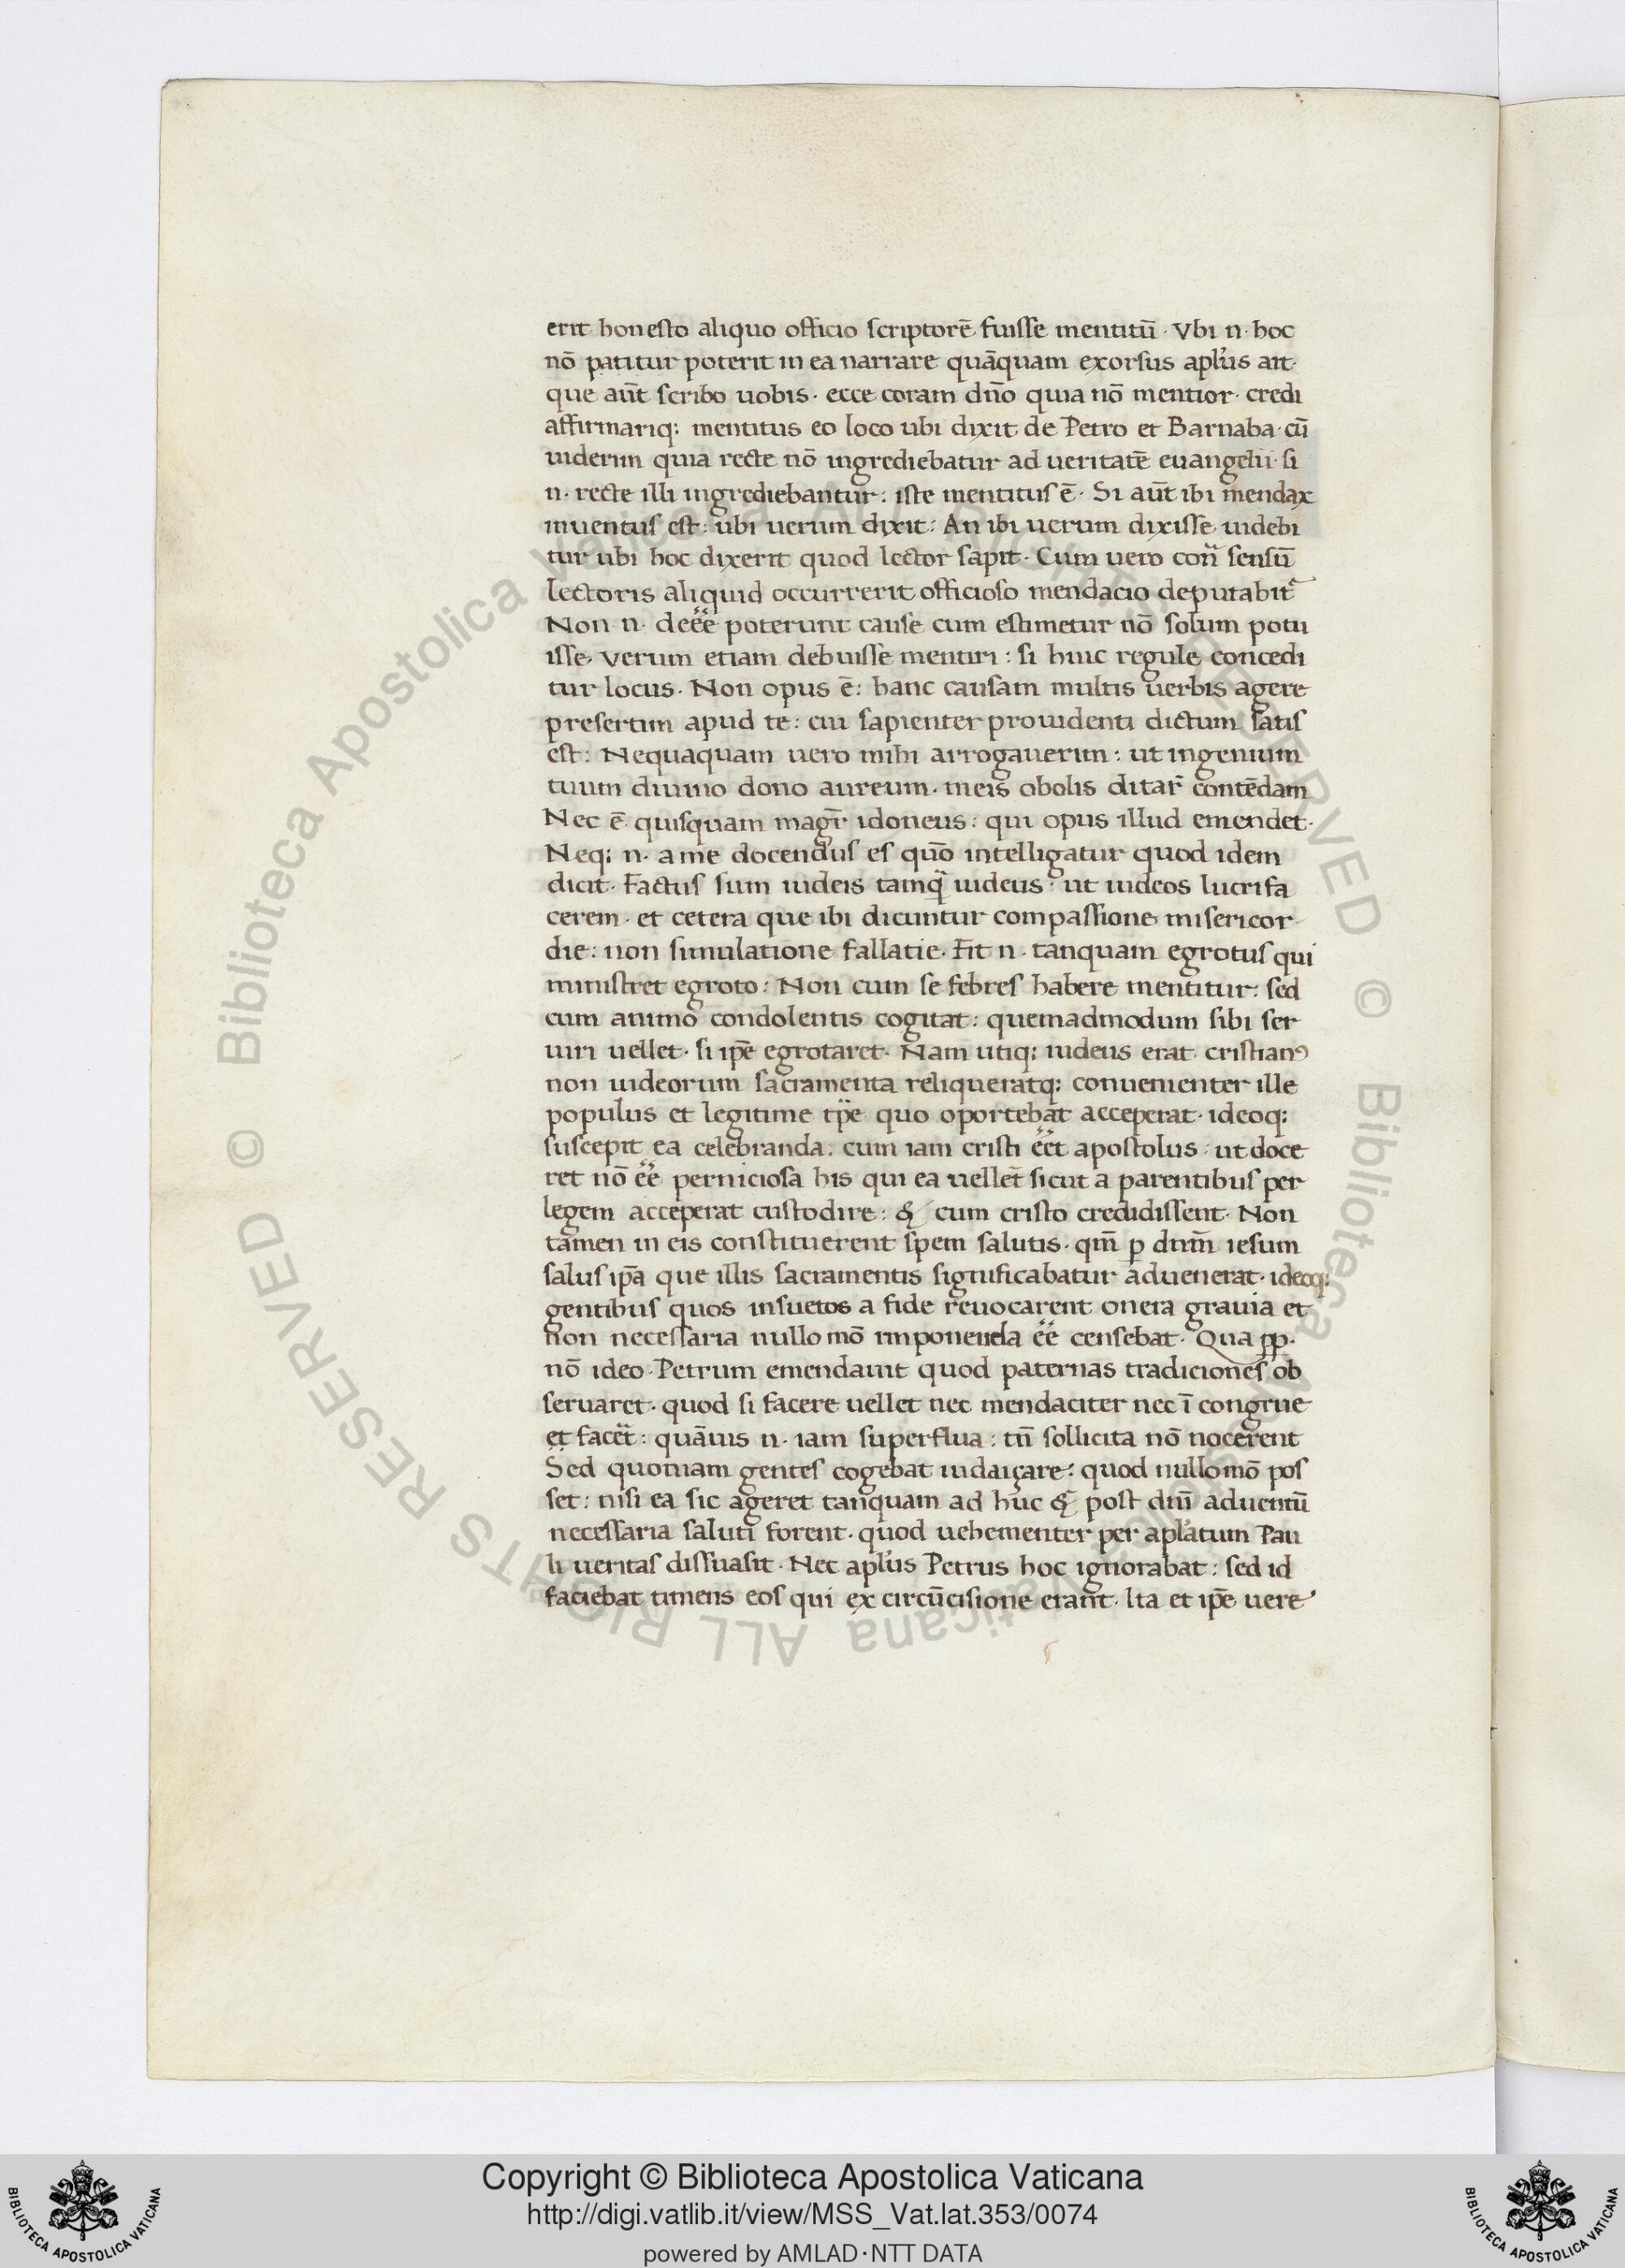 erit honesto aliquo officio scriptorē fuisse mentitū · Vbi n· hoc
nō patitur poterit in ea narrare quāquam exorsus apl'us ait·
que aūt scribo uobis · ecce coram dn̄o quia nō mentior · credi
affirmariq; mentitus eo loco ubi dixit de Petro et Barnaba · cū
uiderim quia recte nō ingrediebatur ad ueritatē euangelii · si
n· recte illi ingrediebantur : iste mentitus ē · Si aūt ibi mendax
inuentus est : ubi uerum dixit : An ibi uerum dixisse uidebi
tur ubi hoc dixerit quod lector sapit · Cum uero con̄ sensū
lectoris aliquid occurrerit officioso mendacio deputabit᷑
Non n· deēē poterunt cause cum estimetur nō solum potu
isse verum etiam debuisse mentiri : si huic regule concedi
tur locus · Non opus ē : hanc causam multis uerbis agere
presertim apud te : cui sapienter prouidenti dictum satis
est : Nequaquam uero mihi arrogauerim : ut ingenium
tuum diuino dono aureum · meis obolis ditar̄ contēdam
Nec ē quisquam magr̄ idoneus : qui opus illud emendet ·
Neq; n· a me docendus es quō intelligatur quod idem
dicit · Factus sum iudeis tamq̄ iudeus : ut iudeos lucrifa
cerem · et cetera que ibi dicuntur compassione misericor
die : non simulatione fallatie · Fit n· tanquam egrotus qui
ministret egroto : Non cum se febres habere mentitur : sed
cum animo condolentis cogitat : quemadmodum sibi ser
uiri uellet · si ip̄e egrotaret · Nam utiq; iudeus erat cristianꝰ
non iudeorum sacramenta reliqueratq; conuenienter ille
populus et legitime tp̄e quo oportebat acceperat · ideoq;
suscepit ea celebranda : cum iam cristi ēēt apostolus : ut doce
ret nō ēē perniciosa his qui ea uellēt sicut a parentibus per
legem acceperat custodire : & cum cristo credidissent · Non
tamen in eis constituerent spem salutis · qm̄ ꝑ dnm̄ iesum
salus ip̄a que illis sacramentis significabatur aduenerat · ideoq;
gentibus quos insuetos a fide reuocarent onera grauia et
non necessaria nullo mō imponenda ēē censebat · Qua ꝓp·
nō ideo Petrum emendauit quod paternas tradiciones ob
seruaret · quod si facere uellet nec mendaciter nec ī congrue
et facēt : quāuis n· iam superflua : tn̄ sollicita nō nocerent
Sed quoniam gentes cogebat iudaiçare : quod nullo mō pos
set : nisi ea sic ageret tanquam ad huc & post dnī aduentū
necessaria saluti forent · quod uehementer per apl'atum Pau
li ueritas dissuasit · Nec apl'us Petrus hoc ignorabat : sed id
faciebat timens eos qui ex circūcisione erant · Ita et ip̄e uere
© Biblioteca Apostolica Vaticana ALL RIGHTS RESERVED © Biblioteca Apostolica Vaticana ALL RIGHTS RESERVED
Copyright © Biblioteca Apostolica Vaticana
http://digi.vatlib.it/view/MSS_Vat.lat.353/0074
powered by AMLAD·NTT DATA
BIBLIOTECA APOSTOLICA VATICANA
BIBLIOTECA APOSTOLICA VATICANA